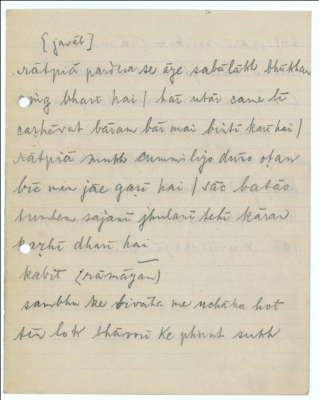 [javāb]
rātpiā pardesa se āye sabālākh bhūkhan
aṅg bharī hai / hāt utār cane lī
caṛhāvat bāran bār mai bintī karī hai /
rātpiā mukh cummilijo duño oṭan
bic men jāe gaṛī hai / sāc batāo
tumhem sajanī jhulanī tehī kāran
kaṛhī dharī hai
kabit (rāmāyan)
sambhu ke bivāha me uchāha hot
tīn lok bhāvarī ke phirat sukh